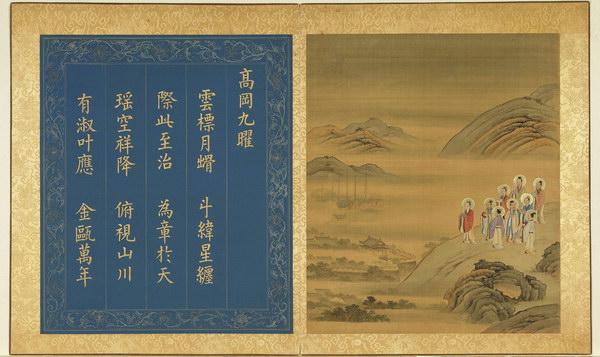 髙岡九曜
雲標月 斗緯星纏
際此至治 為章於天
瑶空祥降 俯視山川
有淑叶應 金甌萬年